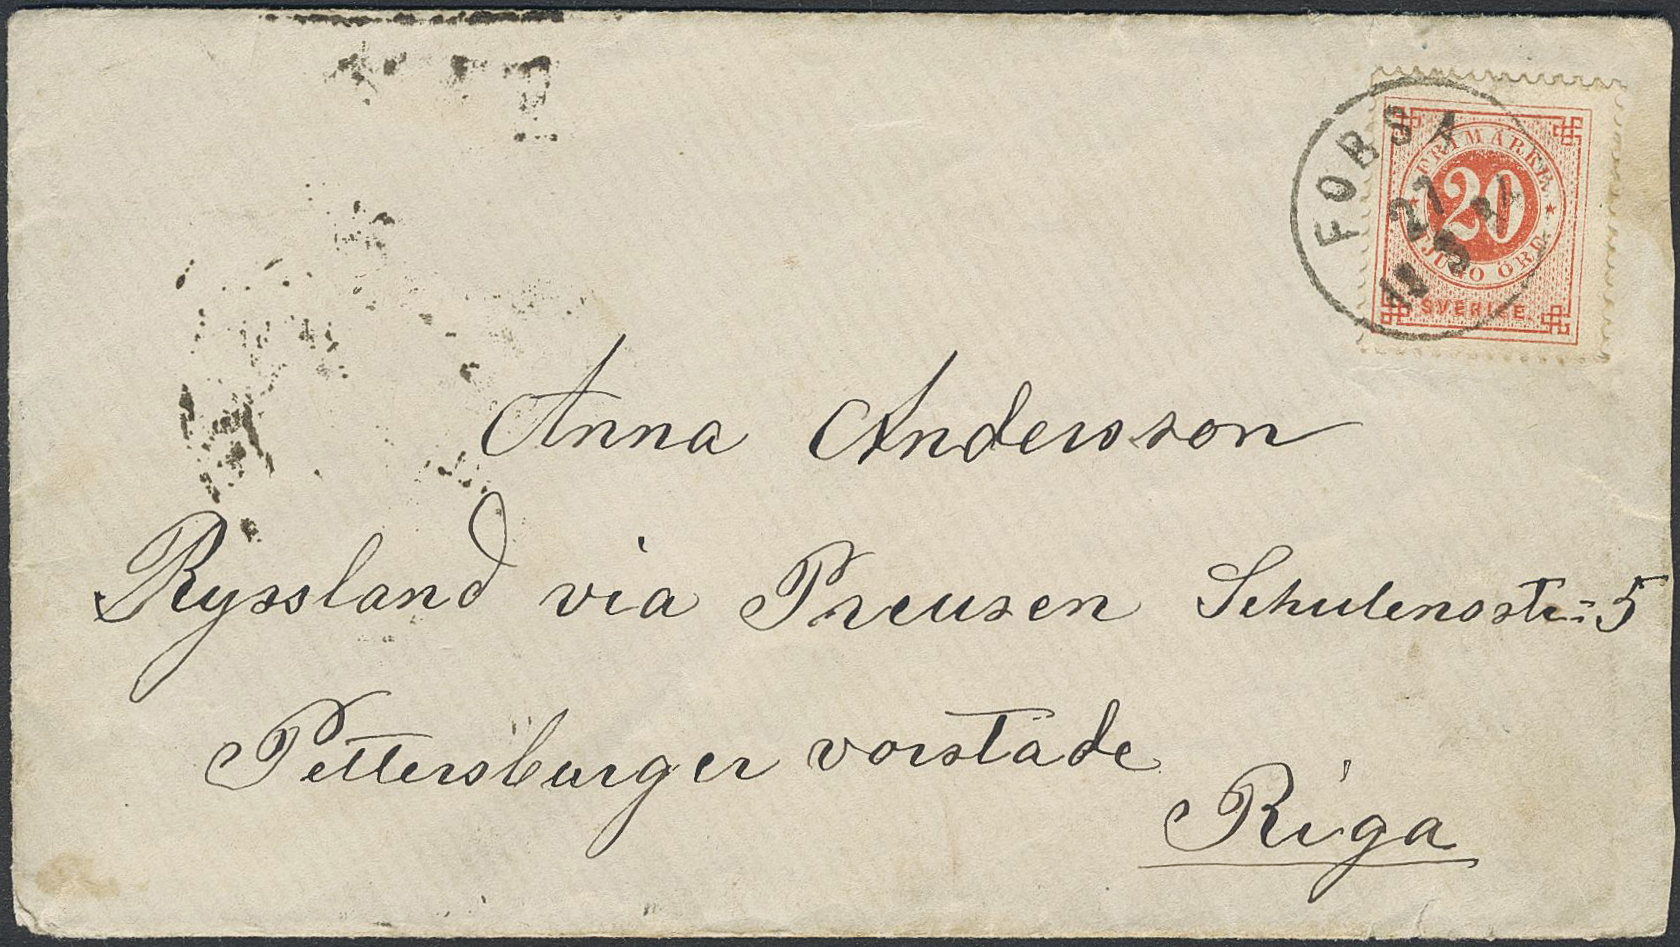 FORSA
27
3
FRIMÄRKE
20
TJUGO ÖRE
SVERIGE.
Anna Andersson
Ryssland via Preusen Schulenstr: 5
Pettersburger vorstade
Riga